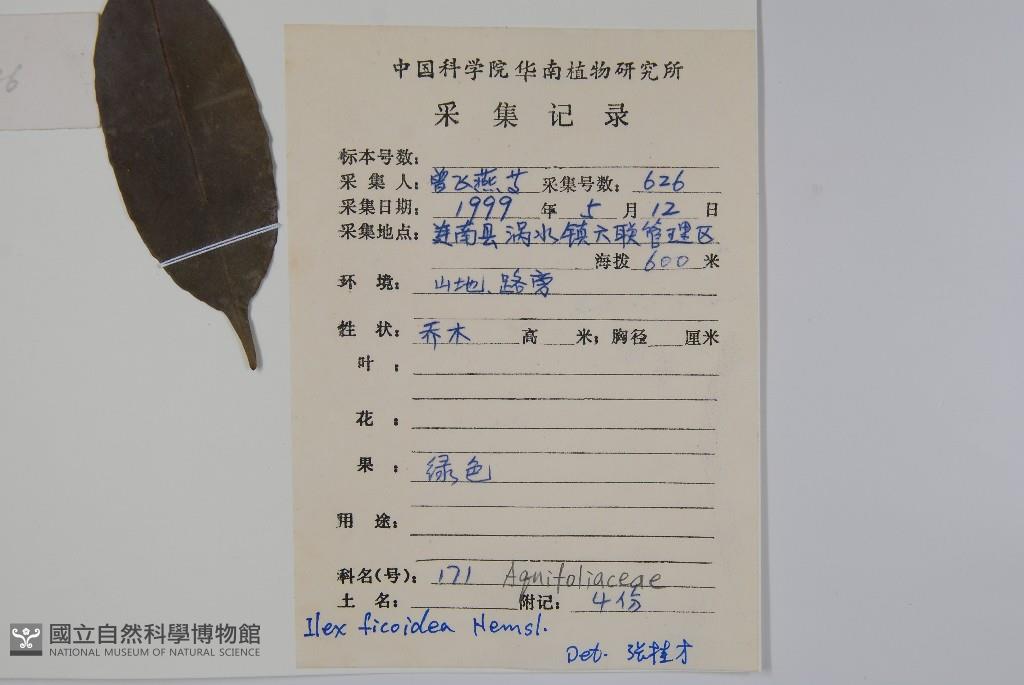 中国科学院华南植物研究所
采集记录
标本号数：
采集人：曾飞燕等 采集号数：626
采集日期：1999年5月12日
采集地点：连南县涡水镇六联管理区
海拨600米
环境：山地、路旁
性状：乔木 高 米；胸径 厘米
叶：
花：
果：绿色
用途：
科名(号)：171 Aquifoliaceae
土名： 附记：4份
Ilex ficoidea Hemsl.
Det. 张桂才
國立自然科學博物館
NATIONAL MUSEUM OF NATURAL SCIENCE